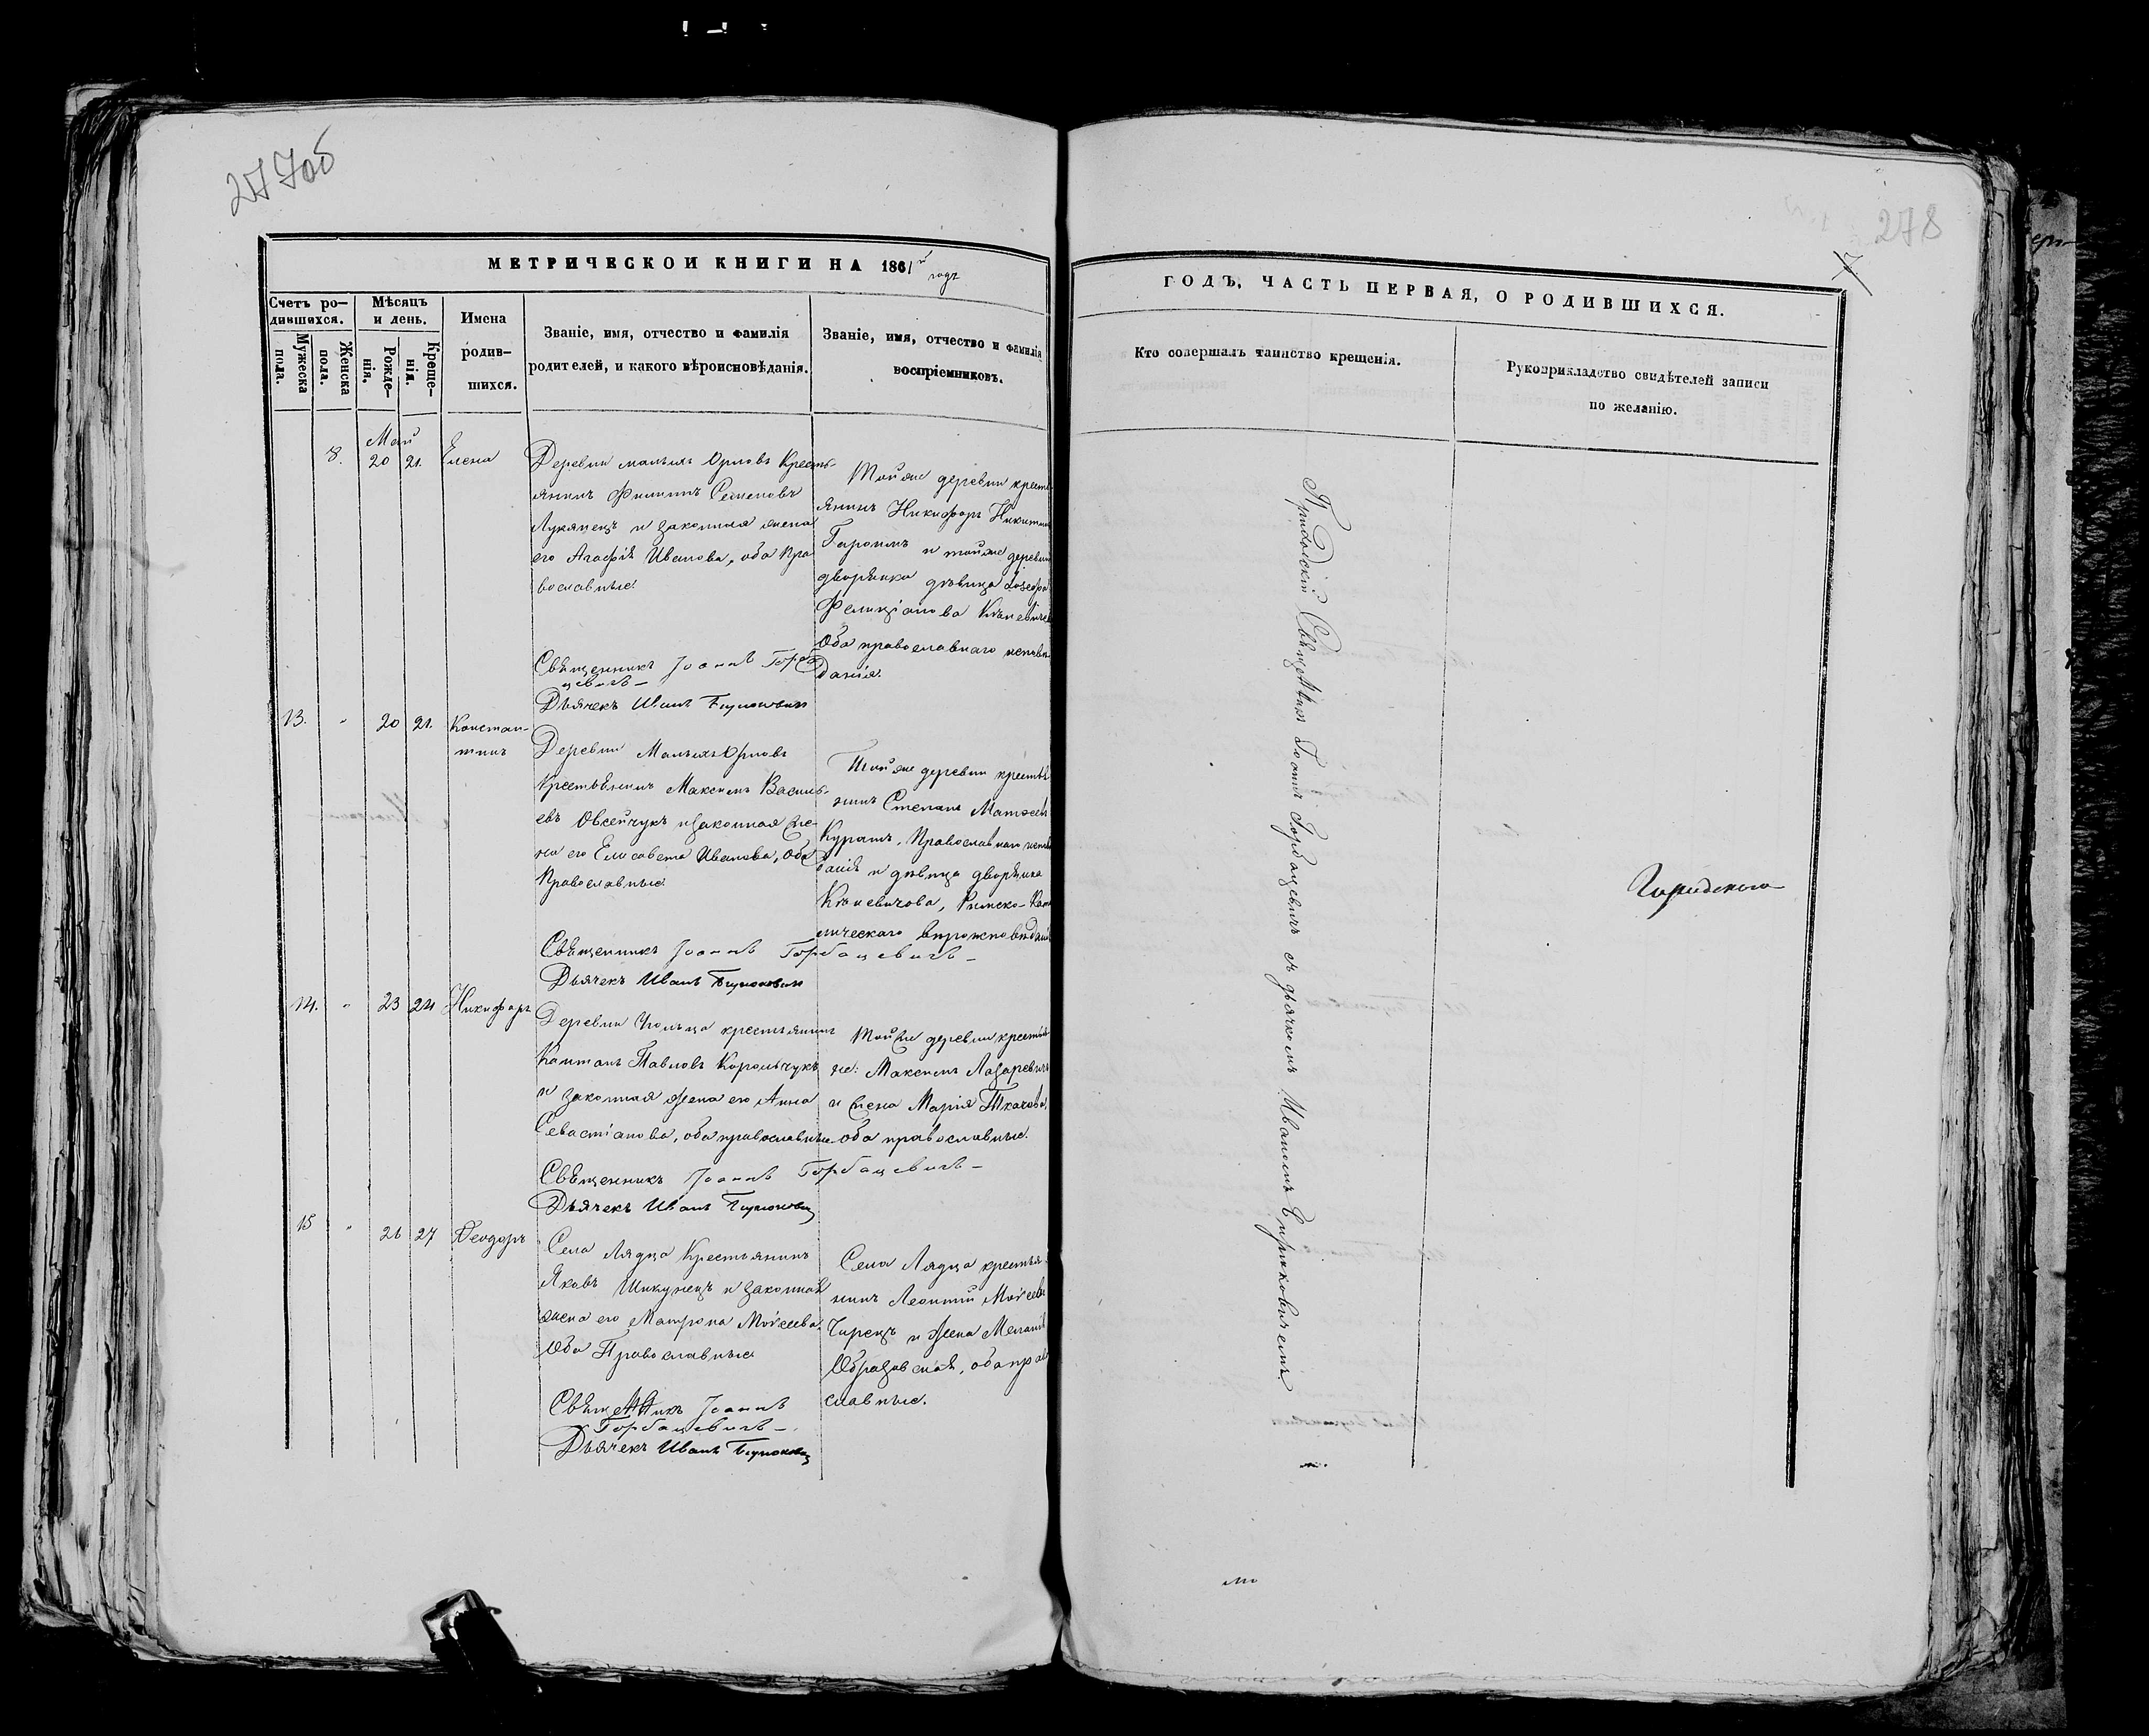 277об
278
7
МЕТРИЧЕСКОЙ КНИГИ НА 1861й
годъ
Счетъ ро-
дившихся.
Мужеска
пола.
Женска
пола.
Мѣсяцъ
и день.
Рожде-
нія.
Креще-
нія.
Имена
родив-
шихся.
Званіе, имя, отчество и фамилія
родителей, и какого вѣроисповѣданія.
Званіе, имя, отчество и фамилія
воспріемниковъ.
Май
8. 20 21. Елена
Деревни малыхъ Орловъ Кресть-
янинъ Филипъ Семеновъ
Лукянецъ и законная жена
его Агафія Иванова, оба Пра
вославные.
Священникъ Іоаннъ Горба
цевичъ
Дьячекъ Иванъ
Той же деревни крестья
янинъ Никифоръ Никитинъ
и той же деревни
дворянка дѣвица
Фелиціанова
Оба православнаго исповѣ
данія.
13. " 20 21. Констан-
тинъ
Деревни Малыхъ Орловъ
Крестьянинъ Максимъ Василь-
евъ Овсейчукъ и законная же-
на его Елисавета Иванова, Оба
Православные
Священникъ Іоаннъ Горбацевичъ
Дьячекъ Иванъ
Той же деревни крестья
нинъ Степанъ Матвеевъ
Православнаго испо
данія и дѣвица дворянка
Римско-Като
лическаго вѣроисповѣданія
14. " 23 24 Никифоръ
Деревни крестьянинъ
Павловъ Корольчукъ
и законная жена его Анна
Севастіанова, оба православные
Священникъ Іоаннъ Горбацевичъ
Дьячекъ Иванъ
Той же деревни крестья
не: Максимъ Лазаревичъ
и жена Марія Ткачова
оба православные.
15 " 26 27 Феодоръ
Села Лядца Крестьянинъ
Яковъ Шикунецъ и законная
жена его Матрона Моисеева
Оба Православные
Священникъ Іоаннъ
Горбацевичъ
Дьячекъ Иванъ
Села Лядца крестья
нинъ Леонтій Моисеевъ
и жена Меланія
оба право
славные.
ГОДЪ, ЧАСТЬ ПЕРВАЯ, О РОДИВШИХСЯ.
Кто совершалъ таинство крещенія.
Рукоприкладство свидѣтелей записи
по желанію.
Приходскій Священникъ Іоаннъ Горбацевичъ съ дьячкомъ Иваномъ